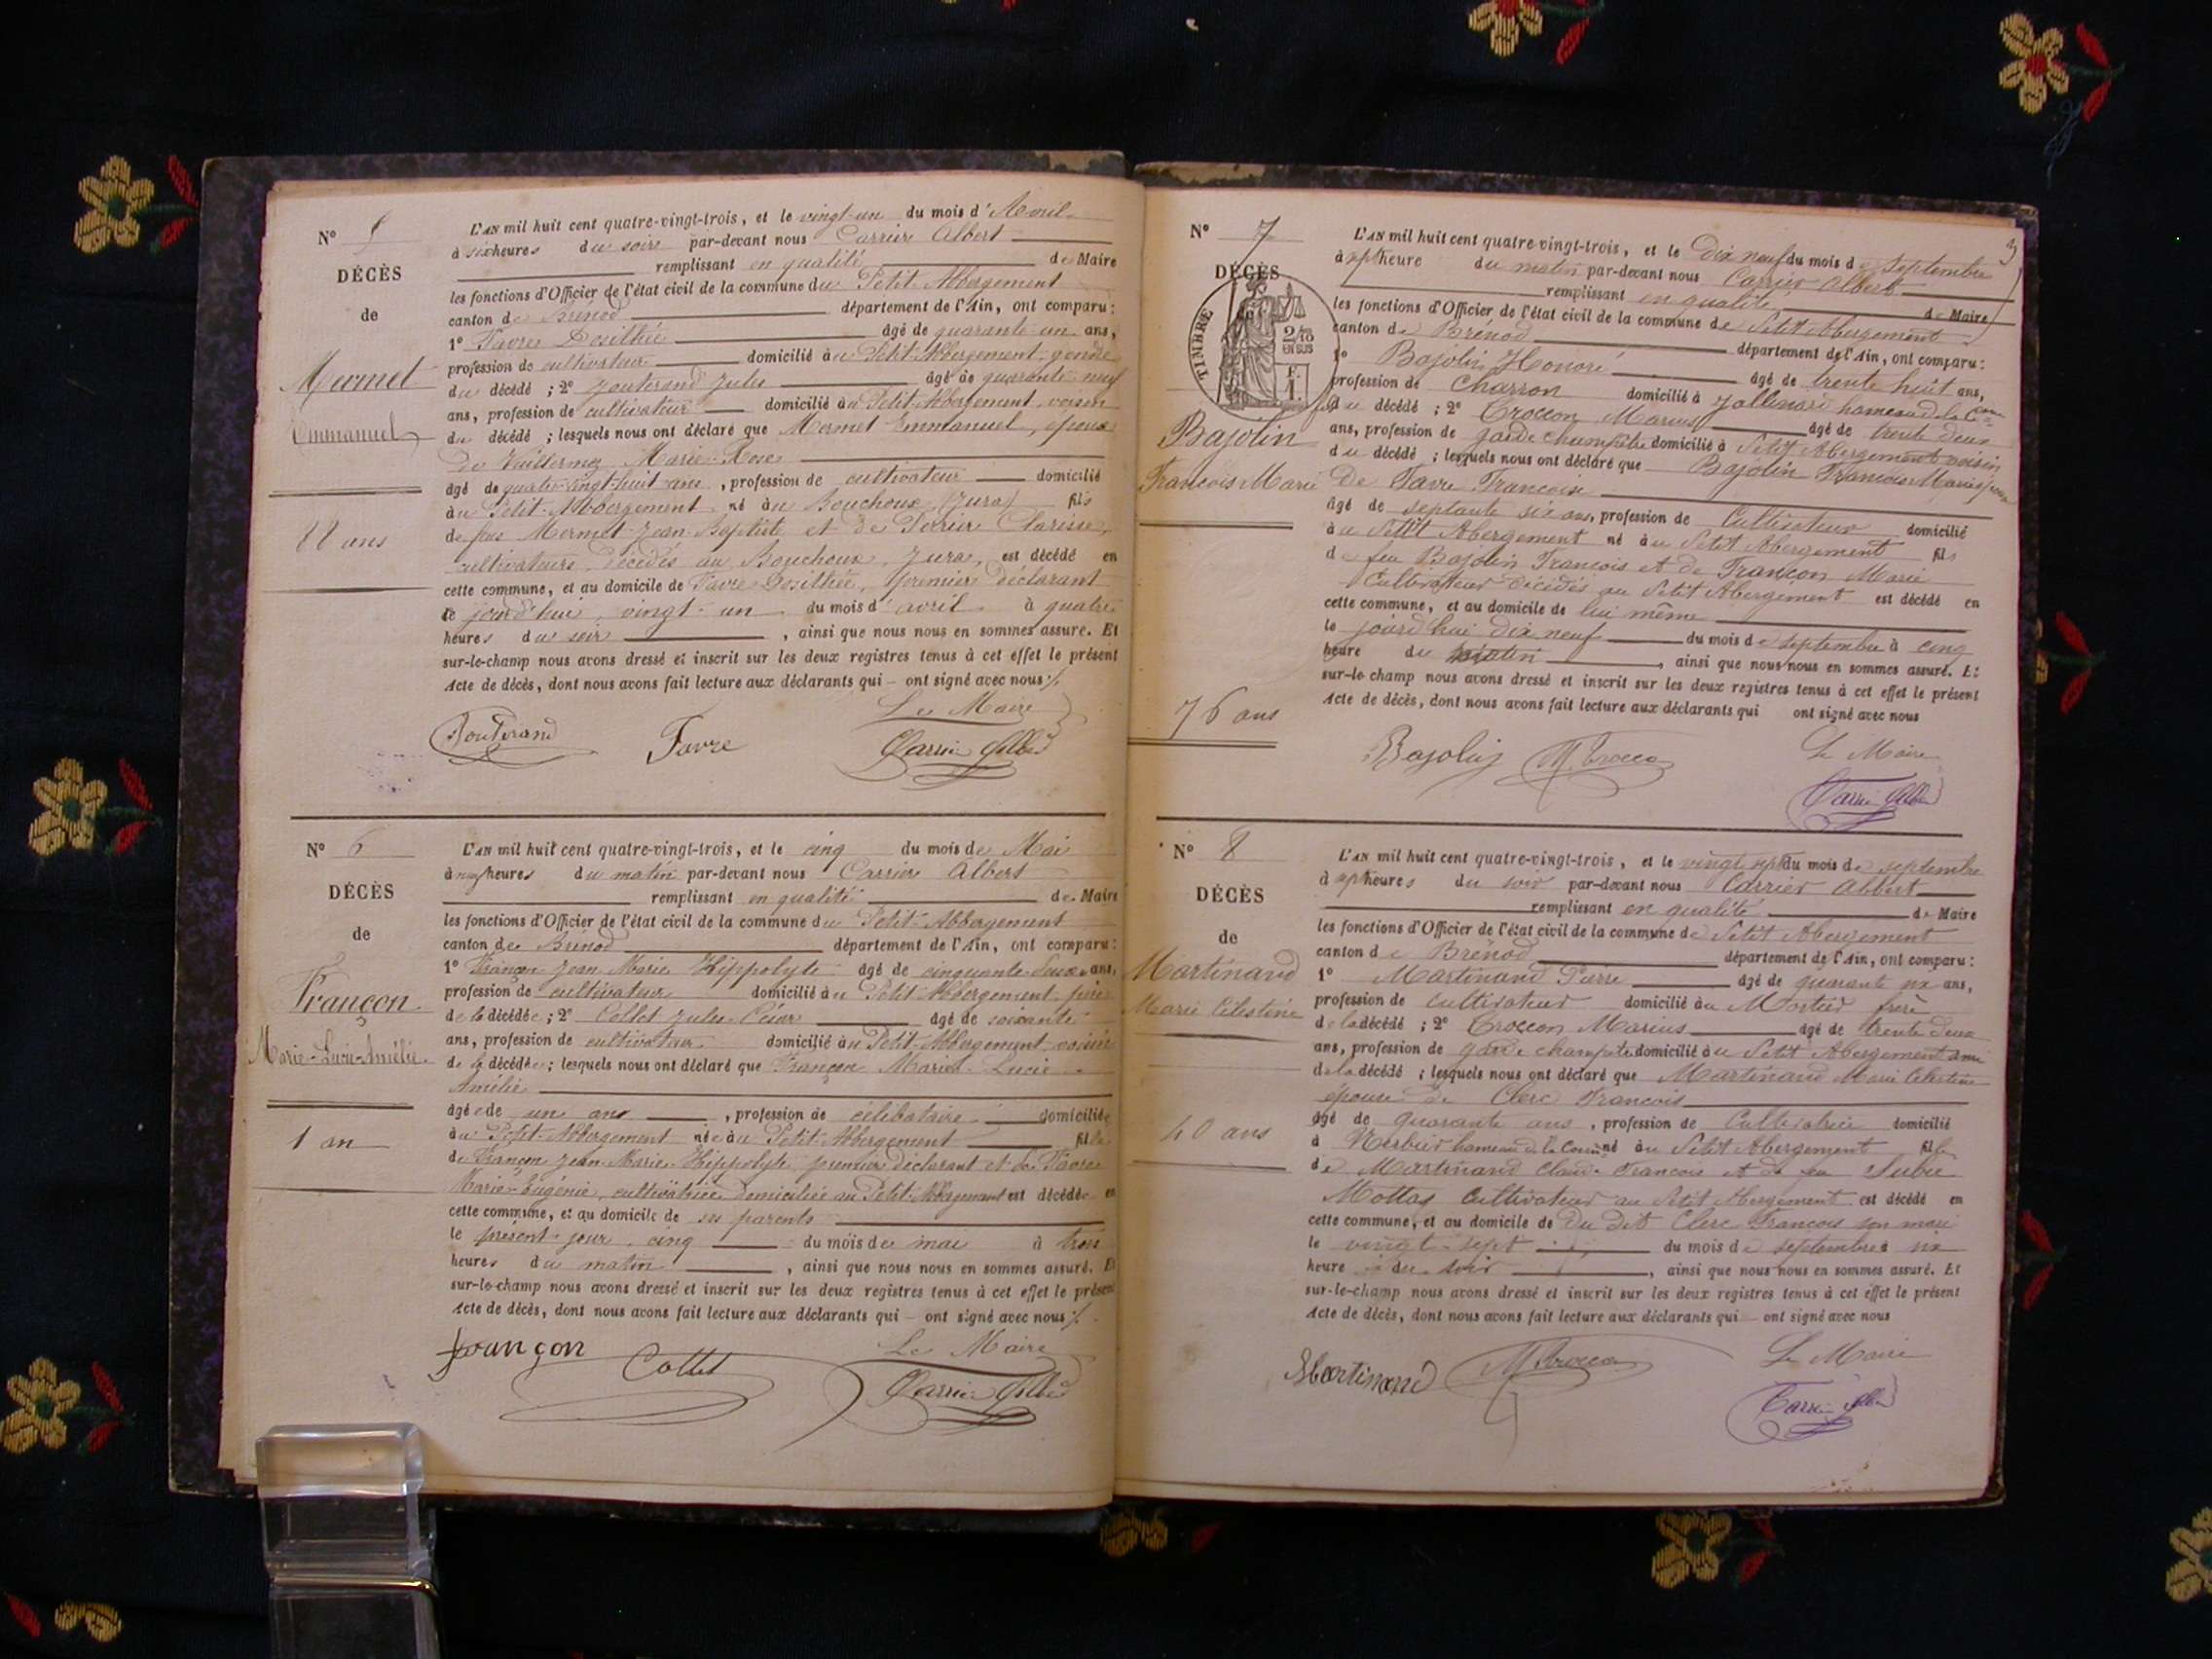 N° 5
DÉCÈS
de
Mermet
Emmanuel
88 ans
L'AN mil huit cent quatre-vingt-trois, et le vingt-un du mois d'Avril
à six heures du soir par-devant nous Carrier Albert
remplissant en qualité de Maire
les fonctions d'Officier de l'état civil de la commune du Petit-Abbergement
canton de Brénod département de l'Ain, ont comparu :
1° Favre Dosithée âgé de quarante-un ans,
profession de cultivateur domicilié au Petit-Abbergement, gendre
du décédé ; 2° Jules âgé de quarante-neuf
ans, profession de cultivateur domicilié au Petit-Abbergement, voisin
du décédé ; lesquels nous ont déclaré que Mermet Emmanuel, époux
de Vuillermoz Marie-Rose
âgé de quatre-vingt-huit ans, profession de cultivateur domicilié
au Petit-Abbergement né au Bouchoux (Jura) fils
de feu Mermet Jean-Baptiste et de Perrier Clarisse,
cultivateurs décédés au Bouchoux, Jura, est décédé en
cette commune, et au domicile de Favre Dosithée, premier déclarant
le jourd'hui, vingt-un du mois d'avril à quatre
heures du soir, ainsi que nous nous en sommes assuré. Et
sur-le-champ nous avons dressé et inscrit sur les deux registres tenus à cet effet le présent
Acte de décès, dont nous avons fait lecture aux déclarants qui – ont signé avec nous ;/.
Le Maire
Favre Carrier Albert
N° 6
DÉCÈS
de
Françon
Marie-Lucie-Amélie
1 an
L'AN mil huit cent quatre-vingt-trois, et le cinq du mois de Mai
à neuf heures du matin par-devant nous Carrier Albert
remplissant en qualité de Maire
les fonctions d'Officier de l'état civil de la commune du Petit-Abbergement
canton de Brénod département de l'Ain, ont comparu :
1° Françon Jean Marie Hippolyte âgé de cinquante-deux ans,
profession de cultivateur domicilié au Petit-Abbergement, père
de la décédée ; 2° Collet Jules-César âgé de soixante
ans, profession de cultivateur domicilié au Petit-Abbergement, voisin
de la décédée ; lesquels nous ont déclaré que Françon Marie-Lucie
Amélie
âgée de un an, profession de célibataire domiciliée
au Petit-Abbergement née au Petit-Abbergement fille
de Françon Jean-Marie Hippolyte premier déclarant et de Favre
Marie-Eugénie, cultivatrice domiciliée au Petit-Abbergement est décédée en
cette commune, et au domicile de ses parents
le présent jour, cinq du mois de mai à trois
heures du matin, ainsi que nous nous en sommes assuré. Et
sur-le-champ nous avons dressé et inscrit sur les deux registres tenus à cet effet le présent
Acte de décès, dont nous avons fait lecture aux déclarants qui – ont signé avec nous ;/.
Le Maire
françon Collet Carrier Albert
3
N° 7
DÉCÈS
de
TIMBRE
2/10
EN SUS
F.
1
Bajolin
François Marie
76 ans
L'AN mil huit cent quatre-vingt-trois, et le Dix neuf du mois de septembre
à sept heure du matin par-devant nous Carrier Albert
remplissant en qualité de Maire
les fonctions d'Officier de l'état civil de la commune de Petit Abergement
canton de Brénod département de l'Ain, ont comparu :
1° Bajolin Honoré âgé de trente huit ans,
profession de Charron domicilié à Jallinard hameau de la Com
du décédé ; 2° Troccon Marius âgé de trente deux
ans, profession de garde champêtre domicilié à Petit Abergement voisin
du décédé ; lesquels nous ont déclaré que Bajolin François Marie époux
De Favre Françoise
âgé de septante six ans, profession de Cultivateur domicilié
au Petit Abergement né au Petit Abergement fils
de feu Bajolin François et de Françon Marie
Cultivateur décédés au Petit Abergement est décédé en
cette commune, et au domicile de lui même
le jourd'hui dix neuf du mois de septembre à cinq
heure du matin, ainsi que nous nous en sommes assuré. Et
sur-le-champ nous avons dressé et inscrit sur les deux registres tenus à cet effet le présent
Acte de décès, dont nous avons fait lecture aux déclarants qui ont signé avec nous
Le Maire
Bajolin M. Trocco Carrier Albert
N° 8
DÉCÈS
de
Martinand
Marie Célestine
40 ans
L'AN mil huit cent quatre-vingt-trois, et le vingt sept du mois de septembre
à sept heures du soir par-devant nous Carrier Albert
remplissant en qualité de Maire
les fonctions d'Officier de l'état civil de la commune de Petit Abergement
canton de Brénod département de l'Ain, ont comparu :
1° Martinand Pierre âgé de quarante six ans,
profession de Cultivateur domicilié au Mortier frère
de la décédé ; 2° Troccon Marius âgé de trente deux
ans, profession de garde champêtre domicilié au Petit Abergement ami
de la décédé ; lesquels nous ont déclaré que Martinand Marie Célestine
épouse de Clerc François
âgé de quarante ans, profession de Cultivatrice domicilié
à hameau de la Comune né au Petit Abergement fille
de Martinand Claude François et de feu
Mottaz Cultivateur au Petit Abergement est décédé en
cette commune, et au domicile de du dit Clerc François son mari
le vingt-sept du mois de septembre à six
heure du soir, ainsi que nous nous en sommes assuré. Et
sur-le-champ nous avons dressé et inscrit sur les deux registres tenus à cet effet le présent
Acte de décès, dont nous avons fait lecture aux déclarants qui – ont signé avec nous
Le Maire
Martinand M. Trocco Carrier Albert